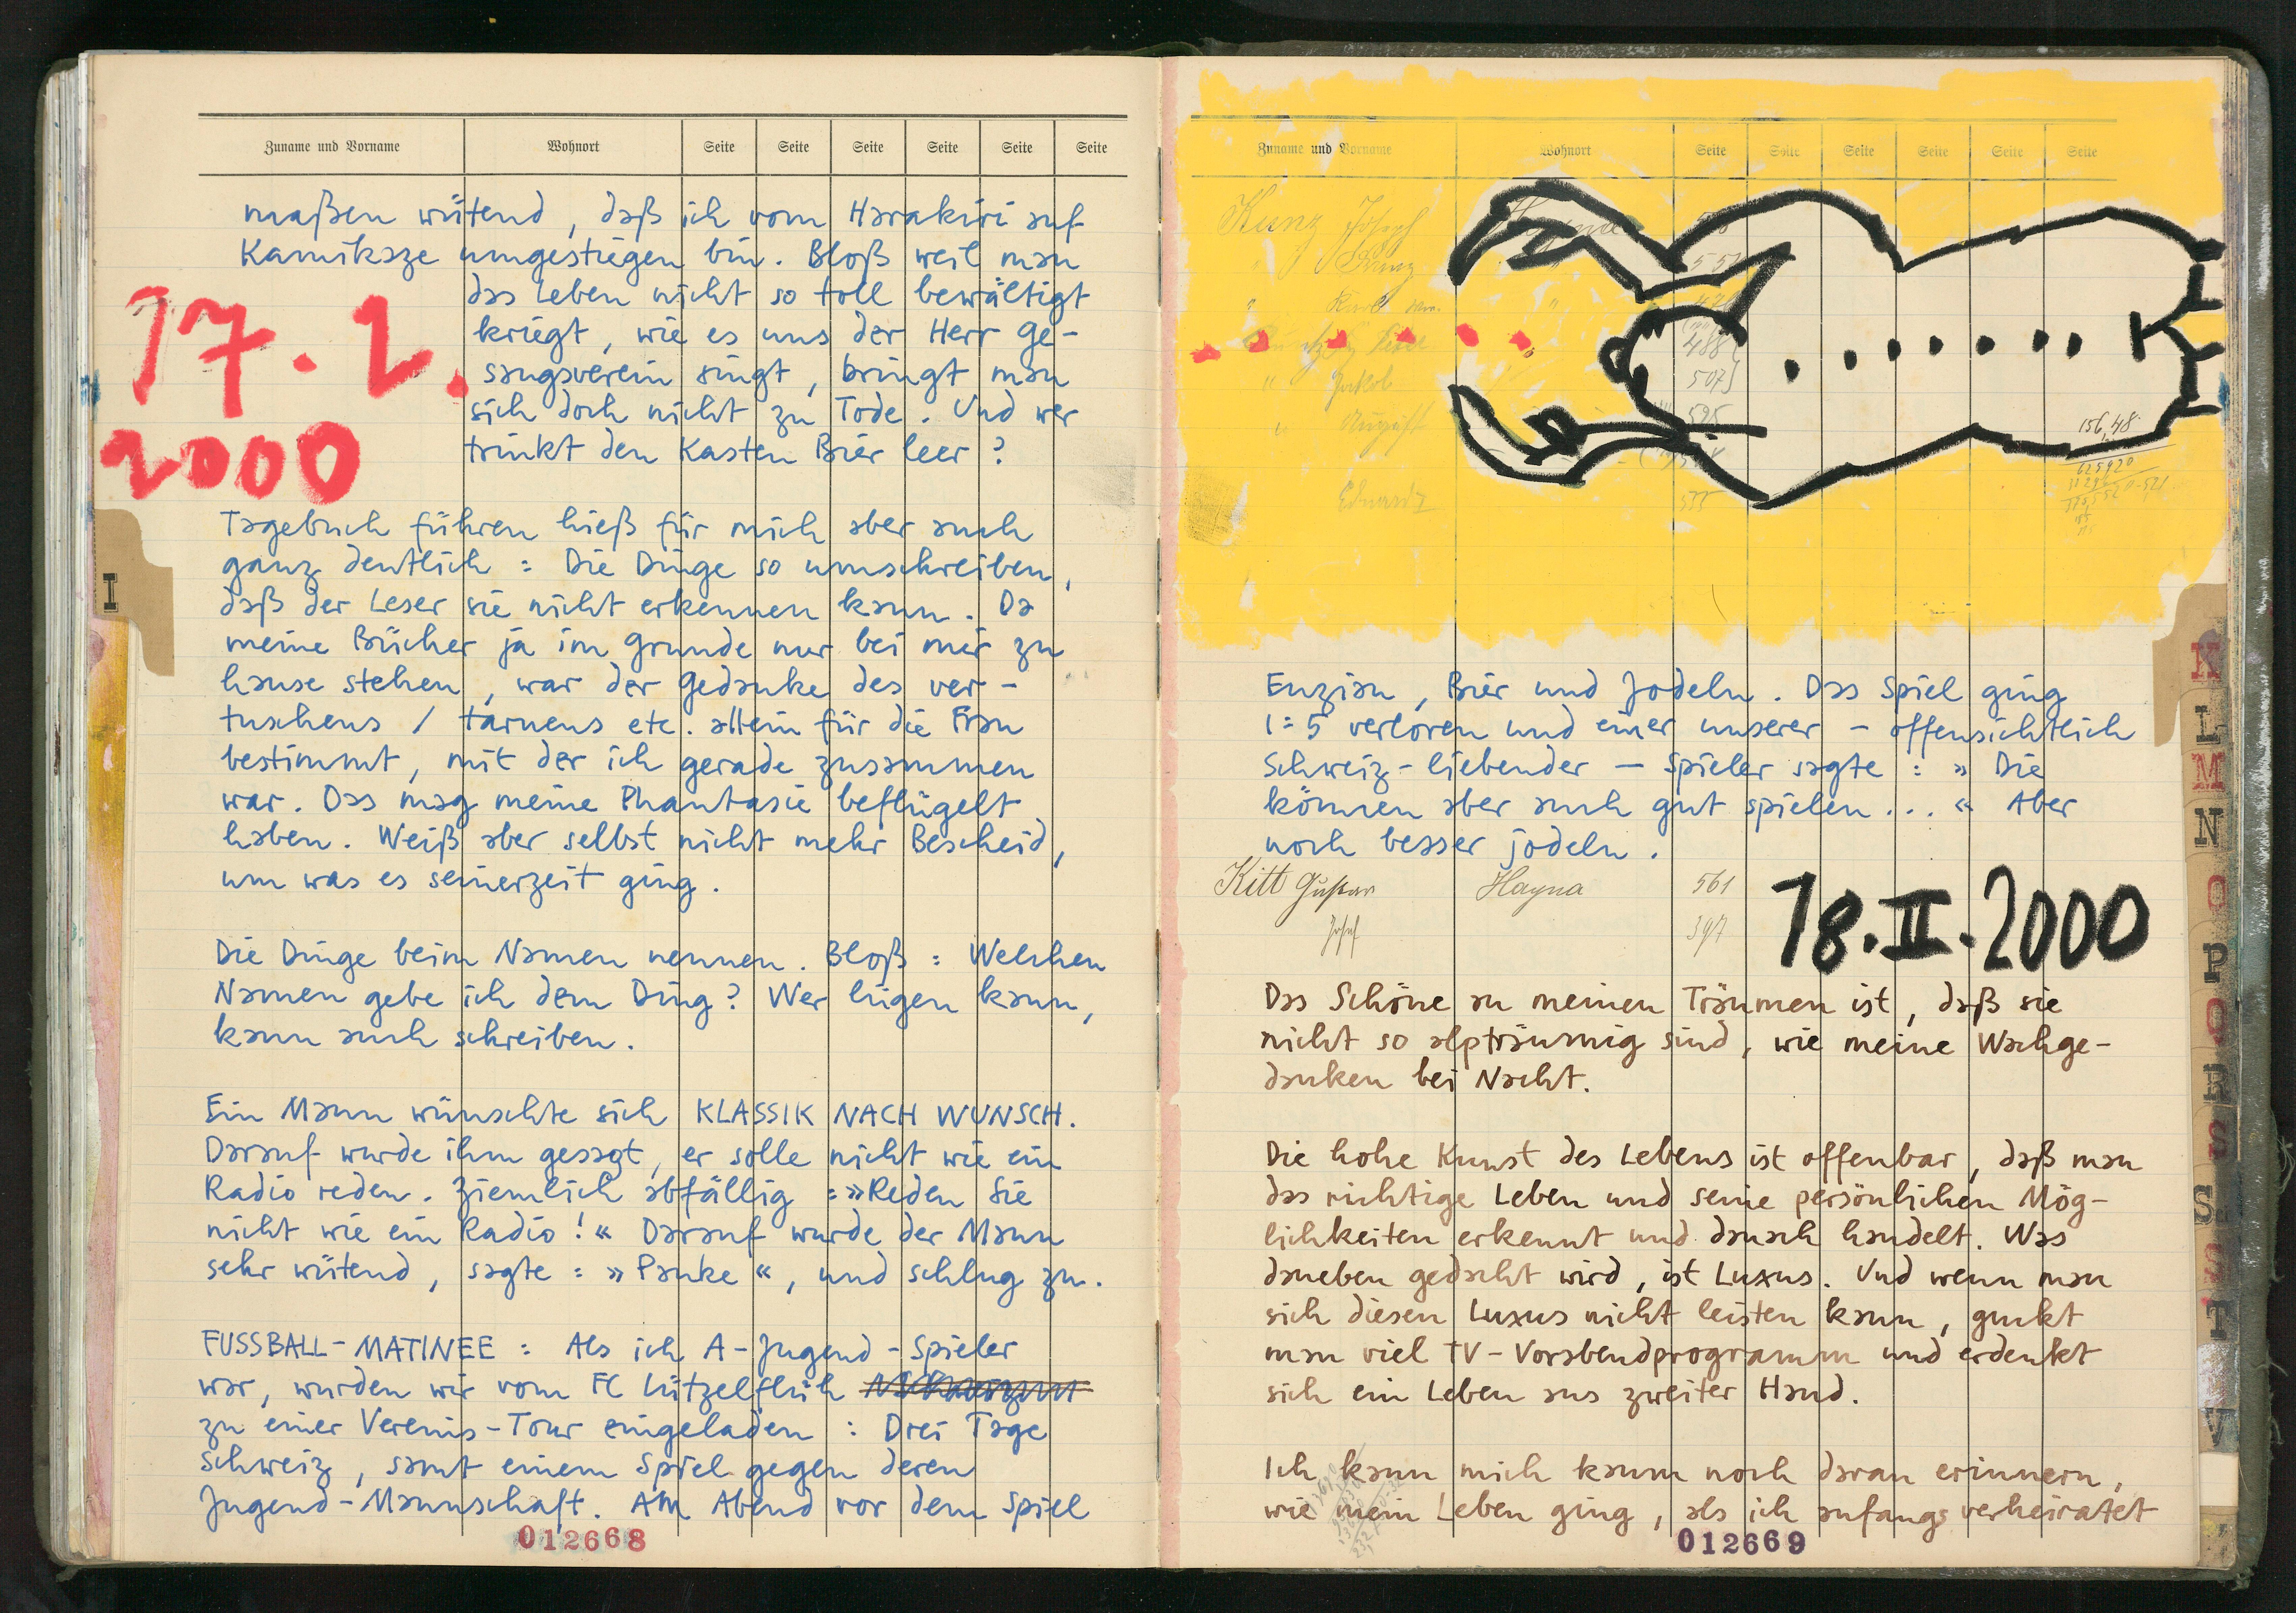 Zuname und Vorname Wohnort Seite Seite Seite Seite Seite Seite
maßen wütend, daß ich vom Harakiri auf
Kamikaze umgestiegen bin. Bloß weil man
das Leben nicht so toll bewältigt
kriegt, wie es uns der Herr Ge-
sangsverein singt, bringt man
sich doch nicht zu Tode. Und wer
trinkt den Kasten Bier leer?
17. 2.
2000
Tagebuch führen hieß für mich aber auch
ganz deutlich: Die Dinge so umschreiben,
daß der Leser sie nicht erkennen kann. Da
meine Bücher ja im Grunde nur bei mir zu
hause stehen, war der Gedanke des ver-
tuschens / tarnens etc. allein für die Frau
bestimmt, mit der ich gerade zusammen
war. Das mag meine Phantasie beflügelt
haben. Weiß aber selbst nicht mehr Bescheid,
um was es seinerzeit ging.
I
Die Dinge beim Namen nennen. Bloß: Welchen
Namen gebe ich dem Ding? Wer lügen kann,
kann auch schreiben.
Ein Mann wünschte sich KLASSIK NACH WUNSCH.
Darauf wurde ihm gesagt, er solle nicht wie ein
Radio reden. Ziemlich abfällig: »Reden Sie
nicht wie ein Radio!« Darauf wurde der Mann
sehr wütend, sagte: »Pauke«, und schlug zu.
FUSSBALL-MATINEE: Als ich A-Jugend-Spieler
war, wurden wir vom FC Lützelflüh
zu einer Vereins-Tour eingeladen: Drei Tage
Schweiz, samt einem Spiel gegen deren
Jugend-Mannschaft. AM Abend vor dem Spiel
012668
Zuname und Vorname Wohnort Seite Seite Seite Seite Seite Seite
Kunz Joseph
" Karl "
488
" Jakob 507
" August 595
Eduard
156,48
Enzian, Bier und Jodeln. Das Spiel ging
1:5 verloren und einer unserer – offensichtlich
Schweiz-liebender – Spieler sagte: » Die
können aber auch gut spielen... « Aber
noch besser jodeln.
Kitt Gustav Hayna 561
Josef 397
18.II.2000
Das Schöne an meinen Träumen ist, daß sie
nicht so alpträumig sind, wie meine Wachge-
danken bei Nacht.
Die hohe Kunst des Lebens ist offenbar, daß man
das richtige Leben und seine persönlichen Mög-
lichkeiten erkennt und danach handelt. Was
daneben gedacht wird, ist Luxus. Und wenn man
sich diesen Luxus nicht leisten kann, guckt
man viel TV-Vorabendprogramm und erdenkt
sich ein Leben aus zweiter Hand.
Ich kann mich kaum noch daran erinnern,
wie mein Leben ging, als ich anfangs verheiratet
012669
K
L
M
N
O
P
Q
R
S
S
T
V